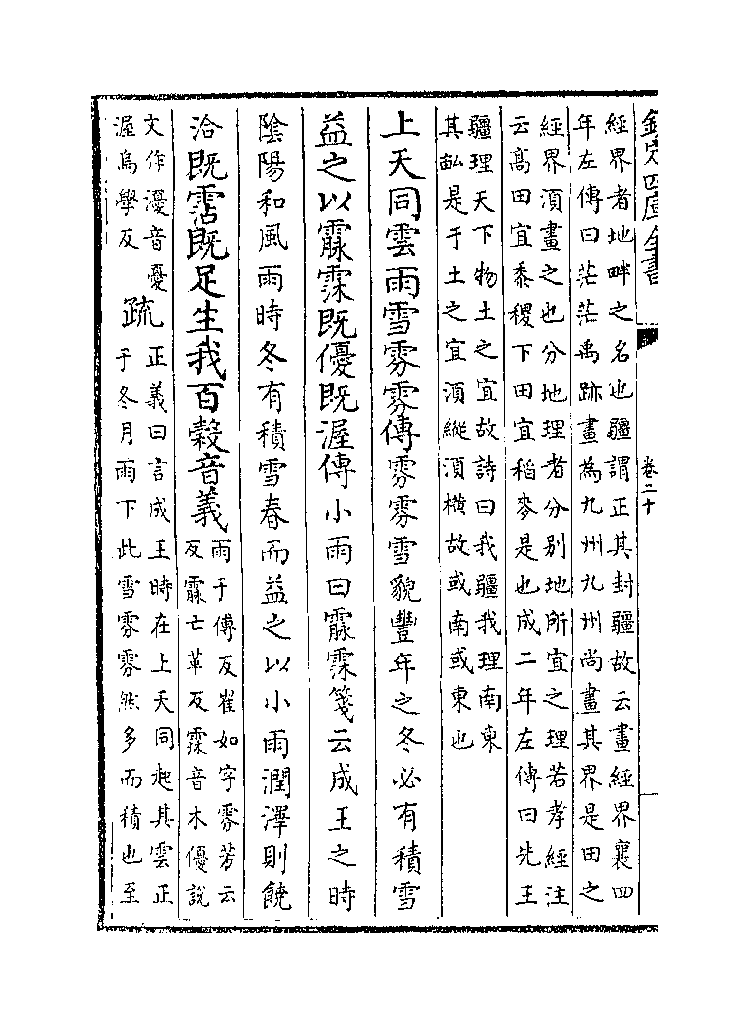 欽定四庫全書
卷二十
經界者地畔之名也疆謂正其封疆故云畫經界襄四
年左傳曰茫茫禹跡畫為九州九州尚畫其界是田之
經界須畫之也分地理者分別地所宜之理若孝經注
云髙田宜黍稷下田宜稻麥是也成二年左傳曰先王
疆理天下物土之宜故詩曰我疆我理南東
其畝是于土之宜須縱須橫故或南或東也
上天同雲雨雪雰雰傳雰雰雪貌豐年之冬必有積雪
益之以霢霂既優既渥傳小雨曰霢霂箋云成王之時
陰陽和風雨時冬有積雪春而益之以小雨潤澤則饒
洽既霑既足生我百糓音義
雨于傳反崔如字雰芳云
反霢亡革反霂音木優說
文作瀀音憂
渥烏學反
疏
正義曰言成王時在上天同起其雲正
于冬月雨下此雪雰雰然多而積也至